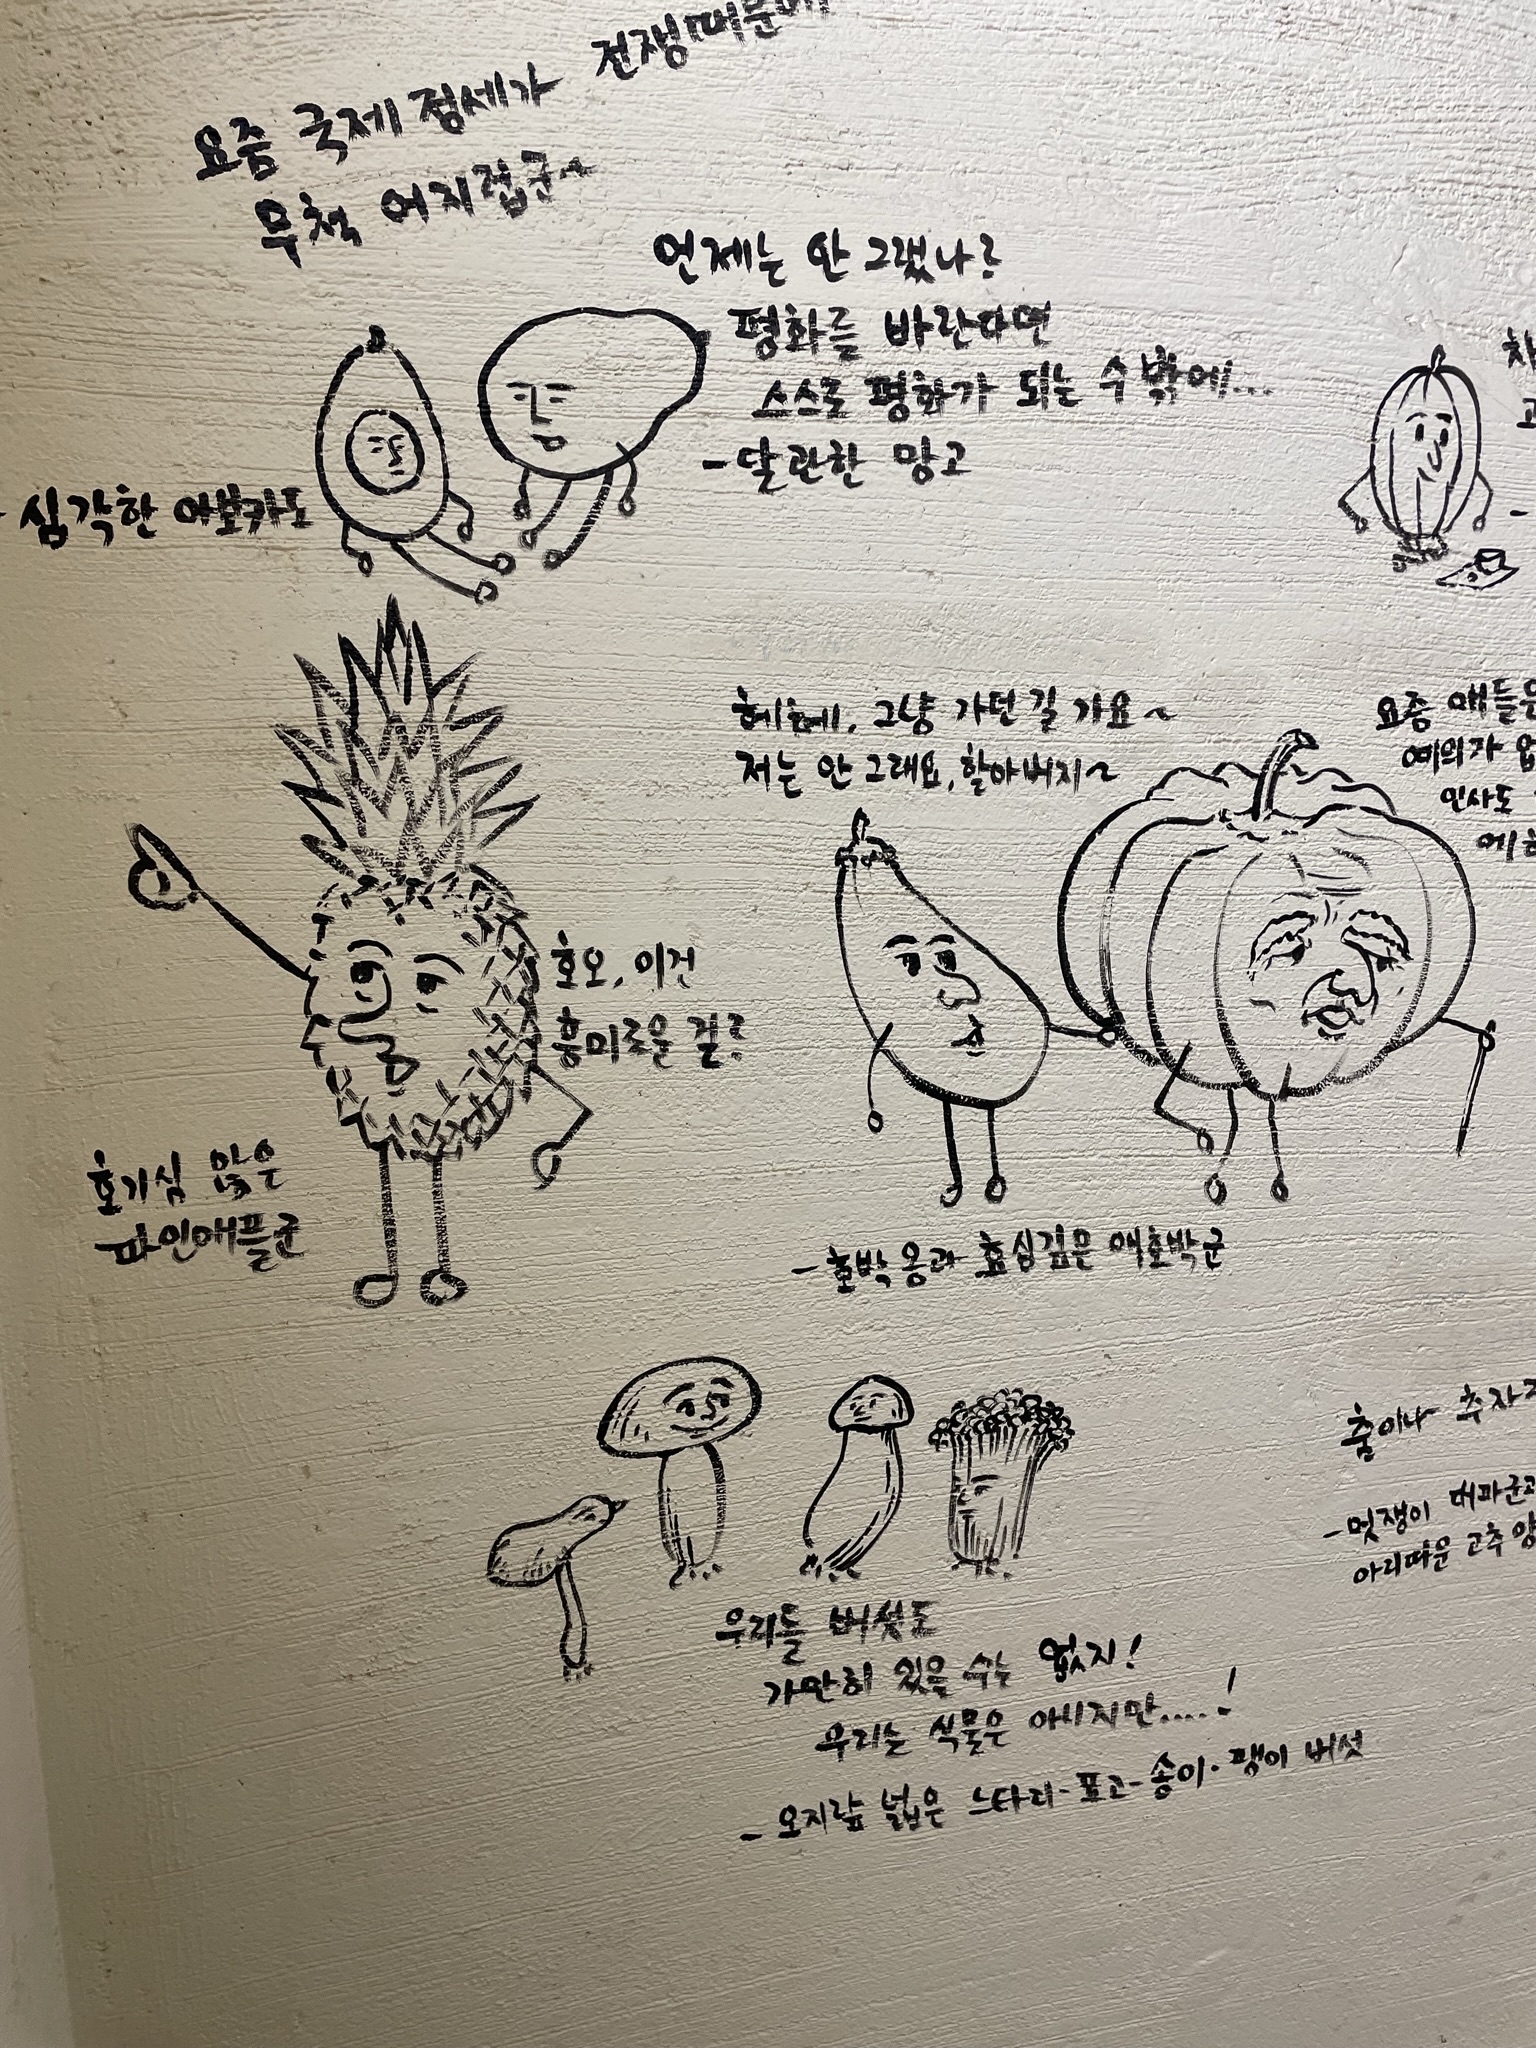 요즘 국제 정세가 전쟁때문에
무척 어지럽군~
언제는 안 그랬나?
평화를 바란다면
스스로 평화가 되는 수 밖에...
- 달관한 망고
- 심각한 아보카도
헤헤, 그냥 가던 길 가요~
저는 안 그래요, 할아버지~
요즘 애들은
예의가
인사도
호오, 이건
흥미로운 걸?
호기심 많은
파인애플군
- 호박 옹과 효심깊은 애호박군
우리들 버섯도
가만히 있을 수는 없지!
우리는 식물은 아니지만.....!
- 오지랖 넓은 느타리-표고-송이·팽이 버섯
춤이나 추자
- 멋쟁이 대파군과
아리따운 고추양